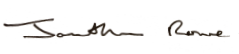 Jonathan Rowe